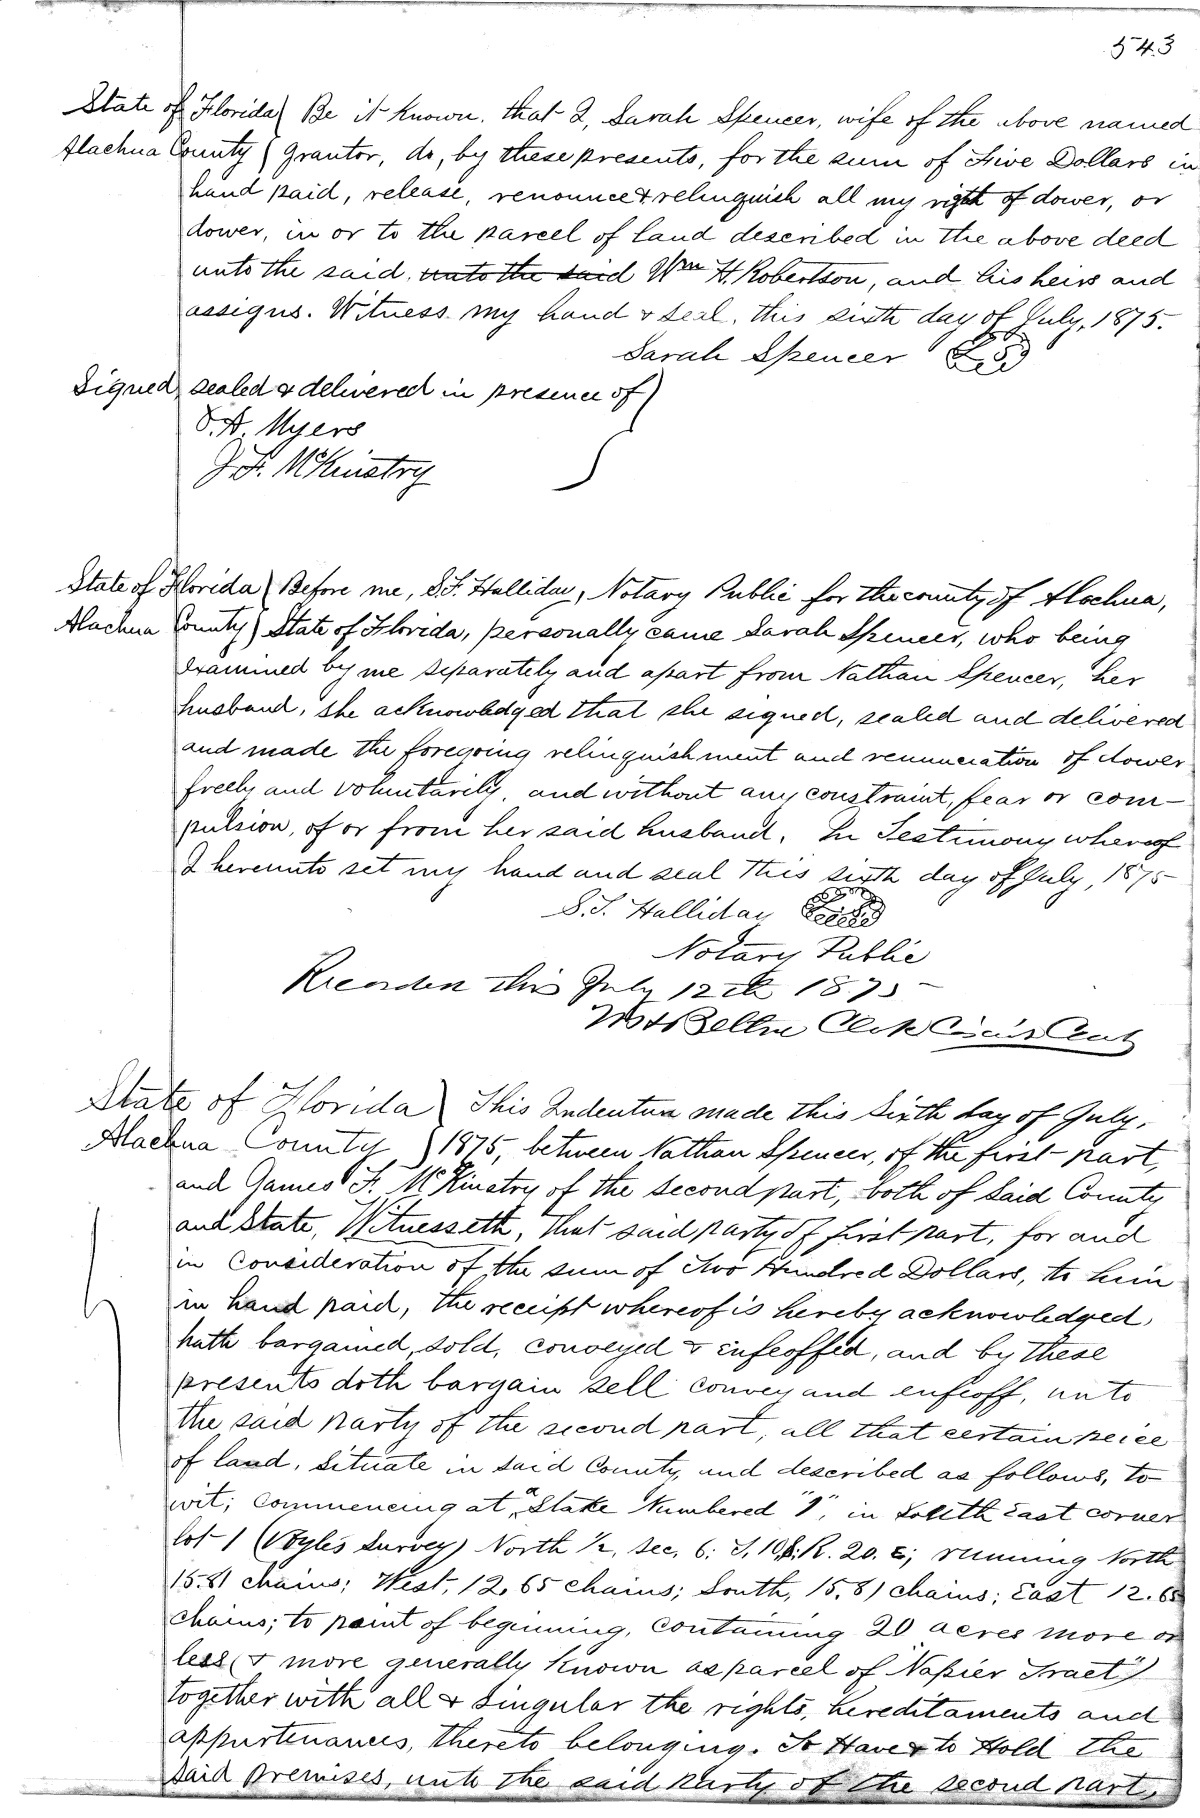 543
State of Florida } Be it Known. that I, Sarah Spencer, wife of the above named
Alachua County } grantor, do, by these presents, for the sum of Five Dollars in
hand paid, release, renounce & relinquish all my right of dower, or
dower, in or to the parcel of land described in the above deed
unto the said unto the said Wm H. Robertson, and his heirs and
assigns. Witness my hand & seal, this sixth day of July, 1875.
Sarah Spencer L.S.
Signed, sealed & delivered in presence of }
O. A. Myers
J. F. McKinstry
State of Florida } Before me, S.F. Halliday, Notary Public for the county of Alachua,
Alachua County } State of Florida, personally came Sarah Spencer, who being
examined by me separately and apart from Nathan Spencer, her
husband, she acknowledged that she signed, sealed and delivered
and made the foregoing relinquishment and renunciation of dower
freely and voluntarily, and without any constraint, fear or com-
pulsion, of or from her said husband. In Testimony whereof
I hereunto set my hand and seal this sixth day of July, 1875
S. F. Halliday
Notary Public
Recorded this July 12th 1875
Clerk Circuit Court
State of Florida } This Indenture made this Sixth day of July,
Alachua County } 1875, between Nathan Spencer, of the first part,
and James F. McKinstry of the second part, both of Said County
and State, Witnesseth, that said party of first part, for and
in consideration of the sum of Two Hundred Dollars, to him
in hand paid, the receipt whereof is hereby acknowledged,
hath bargained, sold, conveyed & enfeoffed, and by these
presents doth bargain sell convey and enfeoff, unto
the said party of the second part, all that certain peice
of land, situate in said County, and described as follows, to
wit; commencing at a Stake Numbered "1", in South East corner
lot 1 (Voyle's Survey) North 1/2, sec. 6: T. 10, S. R. 20. E; running North
15.81 chains; West, 12.65 chains; South, 15.81 chains; East 12.65
chains; to point of beginning, containing 20 acres more or
less (& more generally known as parcel of "Napier Tract")
together with all & singular the rights, hereditaments and
appurtenances, thereto belonging. To Have & to Hold the
said premises, unto the said party of the second part,